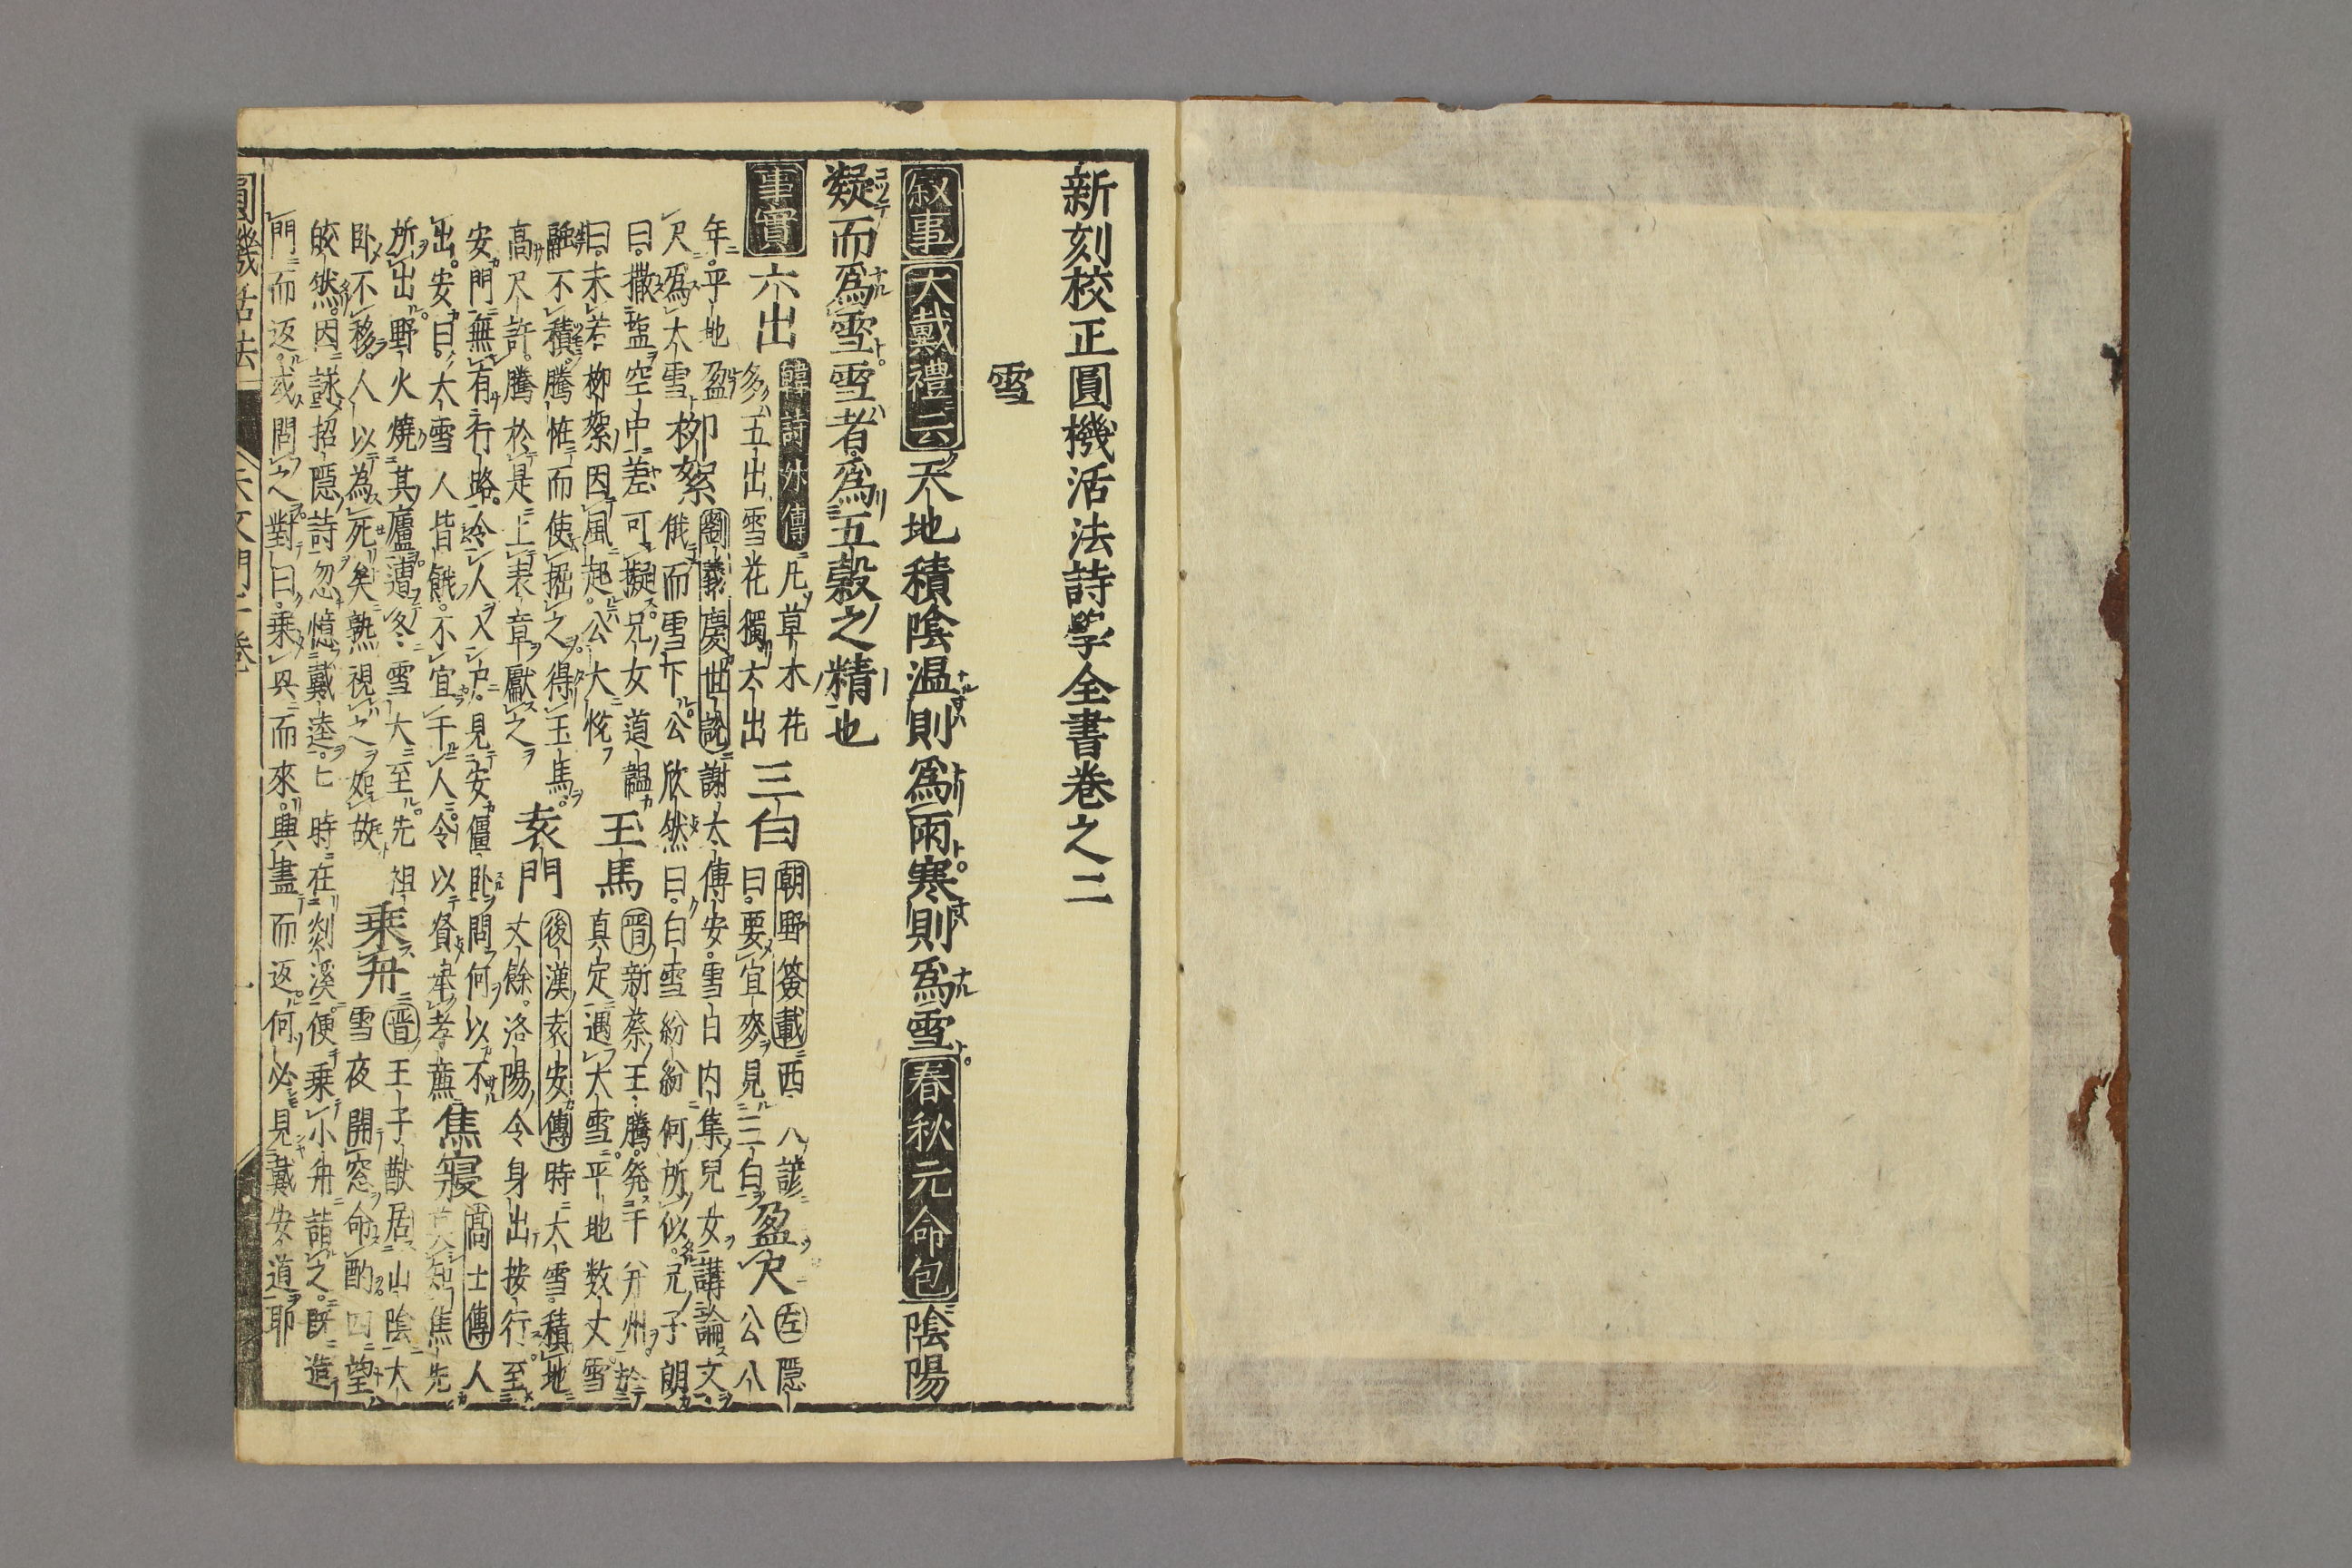 新刻校正圓機活法詩學全書卷之二
雪
叙事 大戴禮云 天地積陰温則爲雨寒則爲雪 春秋元命包 陰陽
凝而爲雪雪者爲五穀之精也
事實 六出 韓詩外傳 凡草木花多五出雪花獨六出 三白 朝野簽載 西人諺曰要宜麥見三白 盈尺 左 隱公八
年平地盈尺爲大雪 柳絮 劉義慶世説 謝太傅安雪日内集兒女講論文俄而雪下公欣然曰白雪紛紛何所似兄子朗
曰撒塩空中差可擬兄女道韞曰未若柳絮因風起公大恱 玉馬 晋 新蔡王騰発于并州於真定遇大雪平地数丈雪
融不積騰恠而使掘之得玉馬高尺許騰於是上表章獻之 袁門 後漢袁安傳 時大雪積地丈餘洛陽令身出按行至
安門無有行路令人入户見安僵卧問何以不出安曰大雪人皆餓不宜干人令以賢舉孝廉 焦寢 高士傳 人莫知焦先
所出野火燒其廬遭冬雪大至先袒卧不移人以為死矣熟視之如故 乗舟 晋 王子猷居山陰大雪夜開窓命酌四望
皎然因詠招隱詩忽憶戴逵逵時在剡溪便乗小舟詣之既造
門而返或問之對曰乗興而來興盡而返何必見戴安道耶
圓機活法 天文門 二卷 一